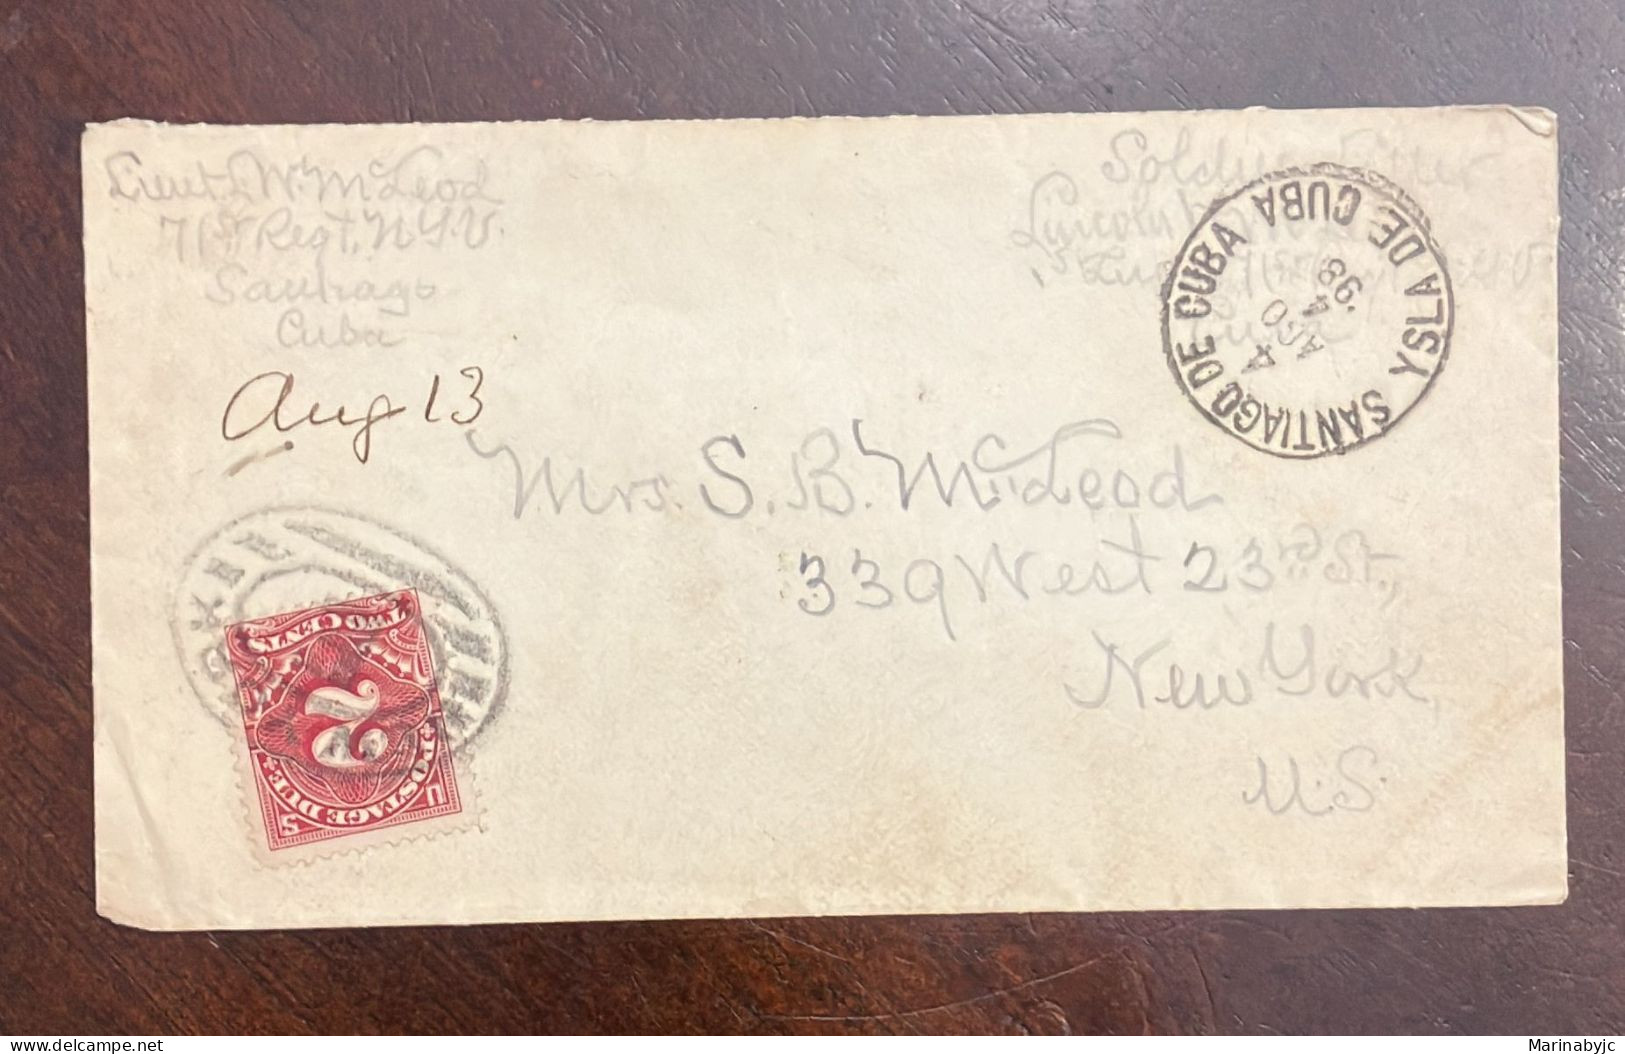 Lieut. W. McLeod
71st Regt. N.Y.V.
Santiago
Cuba
Aug 13
Soldier's Letter
Lincoln
71st
SANTIAGO DE CUBA
Y ISLA DE CUBA
4
AGO
98
Mrs. S. B. McLeod
339 West 23rd St.,
New York
U.S.
TWO CENTS
2
POSTAGE DUE
U S
Marinabyjc